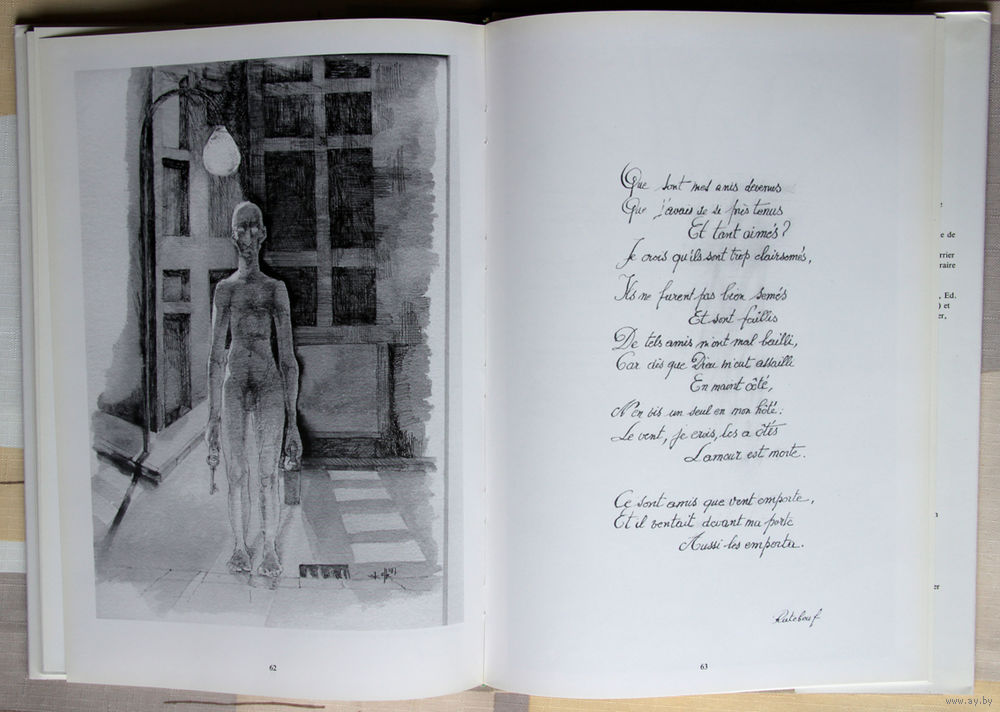 62
Que sont mes amis devenus
Que j'avais de si près tenus
Et tant aimés?
Je crois qu'ils sont trop clairsemés,
Ils ne furent pas bien semés
Et sont faillis
De tels amis m'ont mal bailli,
Car dès que Dieu m'eut assailli
En maint côté,
N'en vis un seul en mon hôté:
Le vent, je crois, les a ôtés
L'amour est morte.
Ce sont amis que vent emporte,
Et il ventait devant ma porte
Aussi les emporta.
Rutebeuf
63
e de
rrier
raire
, Ed.
) et
er,
er
www.ay.by